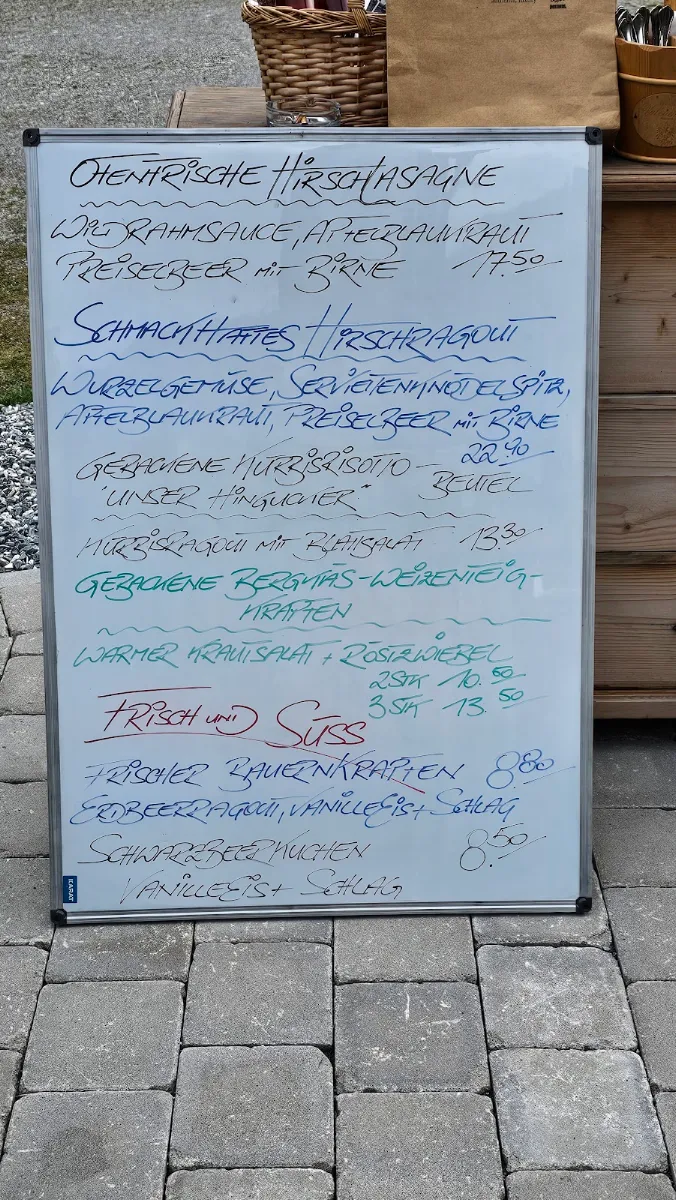 OFENFRISCHE HIRSCHLASAGNE
WILDRAHMSAUCE, APFELBLAUKRAUT
PREISELBEER MIT BIRNE 17.50
SCHMACKHAFTES HIRSCHRAGOUT
WURZELGEMÜSE, SERVIETTENKNÖDELSPITZ,
APFELBLAUKRAUT, PREISELBEER MIT BIRNE
22.90
GEBACKENE KÜRBISRISOTTO-
"UNSER HINGUCKER" BEUTEL
KÜRBISRAGOUT MIT BLATTSALAT 13.30
GEBACKENE BERGKÄS-WEIZENTEIG-
KRAPFEN
WARMER KRAUTSALAT + RÖSTZWIEBEL
2STK 10.50
3STK 13.50
FRISCH UND SÜSS
FRISCHER BAUERNKRAPFEN 8.80
ERDBEERRAGOUT, VANILLEEIS + SCHLAG
SCHWARZBEERKUCHEN 8.50
VANILLEEIS + SCHLAG
KARAT